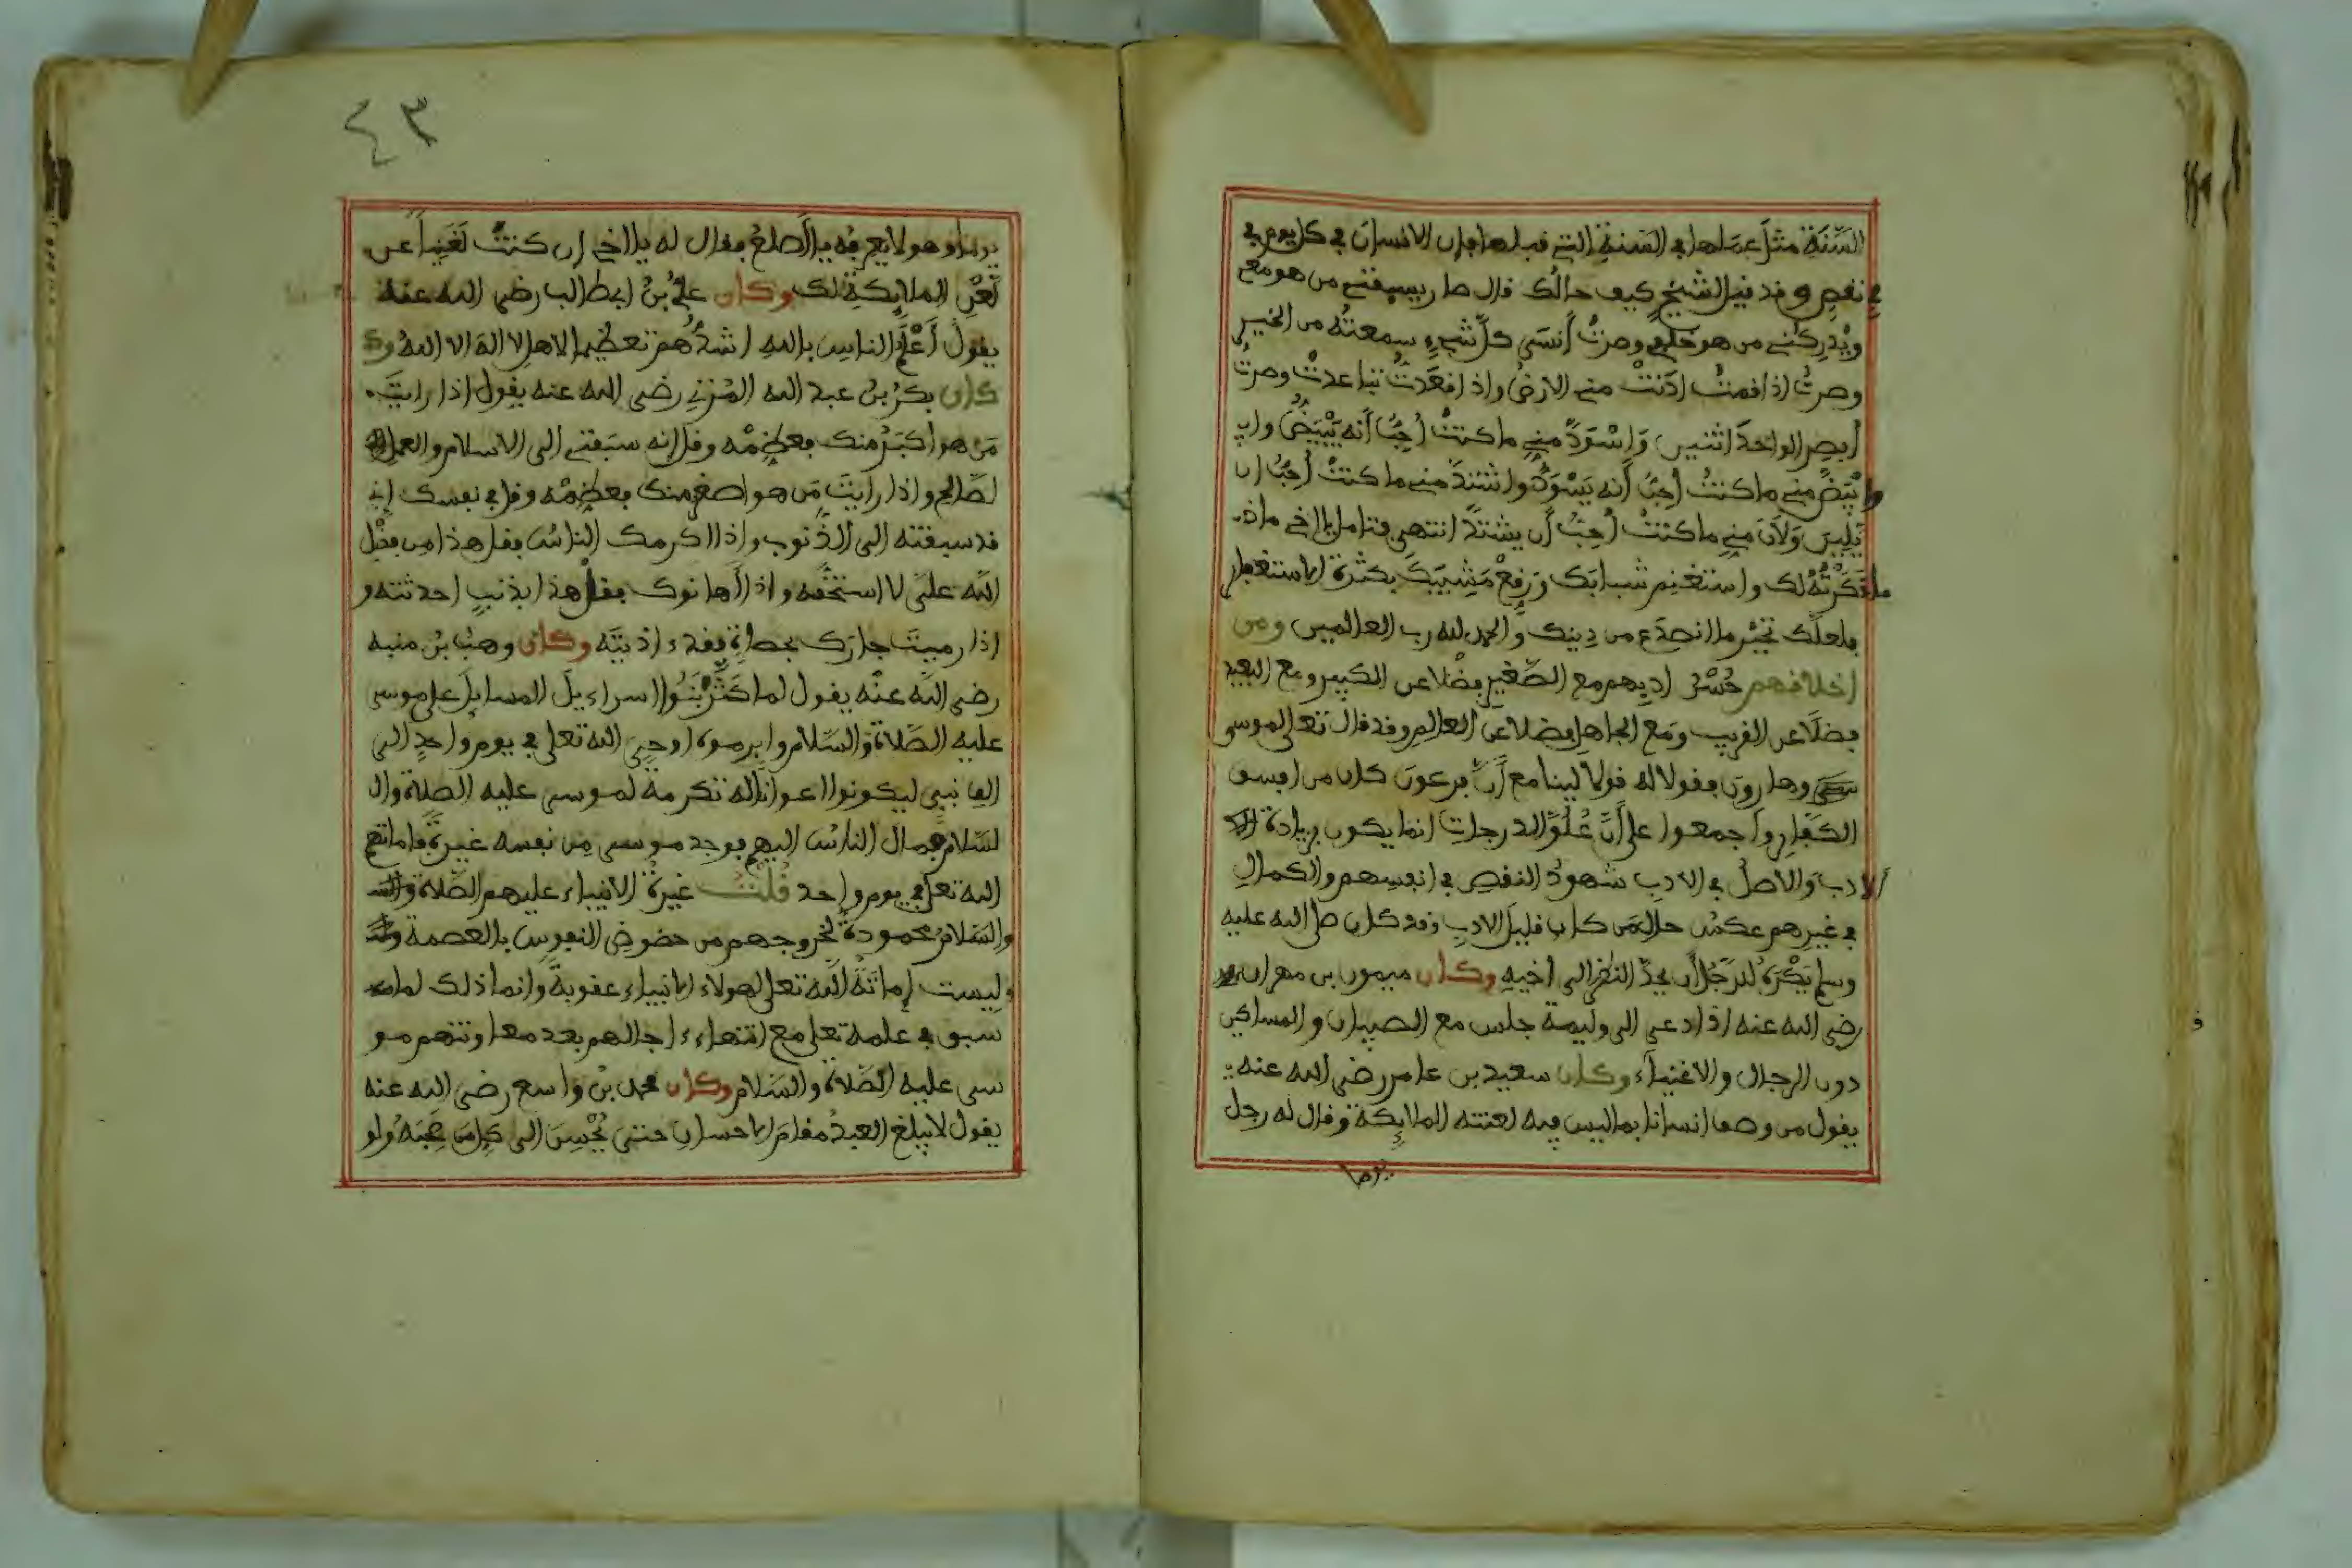 السَّنَةِ مثل عملها في السَنةِ التي قبلها فإن الانسان في كل يوم في
في نقصٍ وقد قيل لشيخ كيف حالك قال صار يسبقني من هو معي
ويُدركني من هو خلفي وصرتُ أنسَى كلَّ شيءٍ سمعتُه من الخير
وصرتُ اذا قمتُ ادَنتْ مني الارضُ واذا فعَدتُ تباعدتْ وصرتُ
أبصر الواحدَ اثنين وَاسْوَدَّ مني ما كنتُ أحِبُّ أنه يَبْيَضُّ واب
وابْيَضَّ مني ما كنتُ أحِبُّ أنه يَسْوَدُّ واشْتدَّ مني ما كنتُ أحِبُّ ان
يَلِينَ وَلَانَ مني ما كنتُ أحِبُّ أن يشتدَّ انتهى فتامل يا اخي ماذ
ما ذَكَرْتُهُ لك واستغنِم شبابَك وَرَقِعْ مَشِيبَكَ بكثرة الاستغفار
فلعلك تَجبُر ما انصدَع من دِينِك والحمد لله رب العالمين ومن
اخلاقهم حُسْنُ ادبِهم مع الصَّغيرِ فضْلا عن الكبير ومع البعيد
فضلًا عن القريب ومَع الجاهل فضلا عن العالِم وقد قال تعالى لموسى
وهارون فقولا له قولا لينا مع أنَّ فرعونَ كان من افسق
الكفار واجمعوا على أنَّ عُلُوَّ الدرجاتِ انما يكون بزيادة
الادب والاصلُ في الادبِ شهودُ النقصِ في انفسهم والكمالِ
في غيرِهم عكسُ حال مَن كان قليلَ الادبِ وقد كان صلى الله عليه
وسلم يَكْرَهُ للرَّجُل أن يحدَّ النظر الى اخيهِ وكان ميمون بن مهران
رضي الله عنه اذا دعي الى وليمة جلس مع الصبيان والمساكين
دون الرجال والاغنياء وكان سعيد بن عامر رضي الله عنه
يقول من وصف انسانا بما ليس فيه لعنته الملائِكة وقال له رجل
يوما
٤٣
يوما وهو لا يعرفه يا أصلعُ فقال له يا اخي ان كنتَ لغَنِيا عن
لَعْنِ الملائكةِ لك وكان عليُّ بنُ ابي طالب رضي الله عنه
يقولُ أعْلَمُ الناسِ باللهِ اشدُّهم تعظيما لاهل لا اله الا اللهُ وك
كان بكرُ بنُ عبد الله المُزنِي رضي الله عنه يقول اذا رايتَ
مَن هو اكبَرُ منك فعظِّمْه وقل انه سبَقني الى الاسلام والعمل
لصَّالح واذا رايتَ مَن هو اصغر منك فعظِّمْه وقل في نفسك إني
قد سبقته الى الذُّنوب واذا اكرمك الناسُ فقل هذا مِن فضْل
اللّه علَيَّ لا استحقُّه واذا أهانوك فقلْ هذا بذنبٍ احدثته و
اذا رميتَ جارَك بحصاةٍ فقد ءاذيتَه وكان وهبُ بنُ منبه
رضي اللّه عنْه يقول لما كَثَّرَ بَنُوا اسراءيلَ المسايلَ على موسى
عليه الصَّلاة والسَّلام وابرموه اوحى الله تعلى في يوم واحدٍ الى
الف نبي ليكونوا اعوانًا له تكرمةً لموسى عليه الصلاة وال
لسَّلام فمال الناسُ اليهم فوجد موسى مِن نفسه غيرةً فاماتهم
الله تعلى في يوم واحد قلتُ غيرةُ الانبياء عليهم الصَّلاة
والسَّلامُ محمودةٌ لخروجهم من حضوضِ النفوس بالعصمة
وليست إماتَتُه اللّه تعلى لهولاء الانبياء عقوبةً وانما ذلك لما
سبق في علمه تعلى مع انتهاء ءاجالهم بعد معاونتهم مو
سى عليه الصَّلاة والسَّلام وكان محمد بْن واسع رضي الله عنه
يقول لا يبلغ العبدُ مقامَ الاحسان حتى يُحْسِنَ الى كل مَن صَحِبَهُ ولو